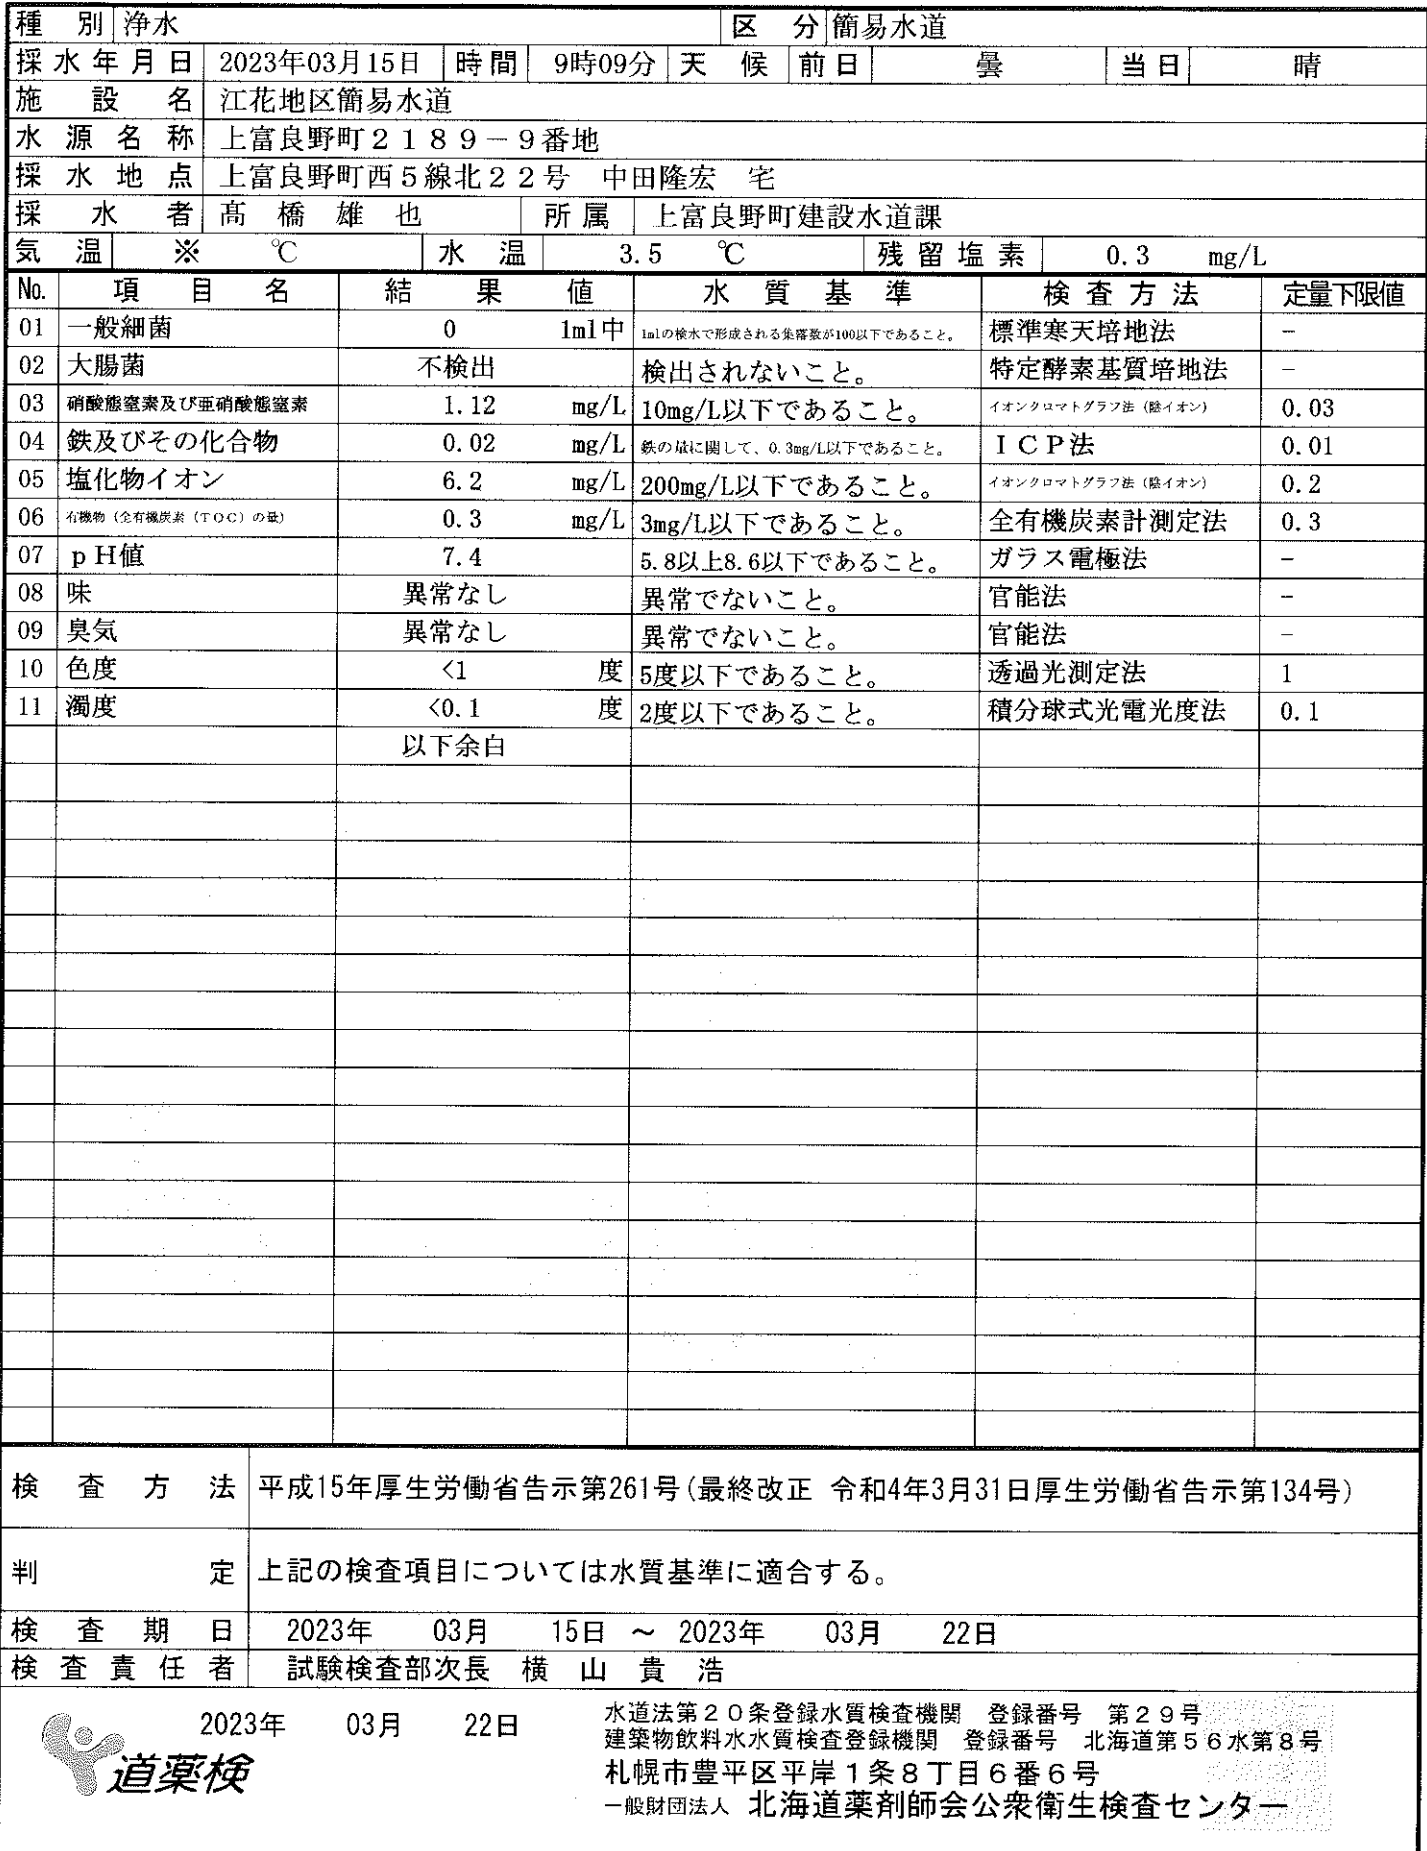 種別 浄水 区分 簡易水道
採水年月日 2023年03月15日 時間 9時09分 天候 前日 曇 当日 晴
施設名 江花地区簡易水道
水源名称 上富良野町2189-9番地
採水地点 上富良野町西5線北22号 中田隆宏 宅
採水者 髙橋雄也 所属 上富良野町建設水道課
気温 ※ ℃ 水温 3.5 ℃ 残留塩素 0.3 mg/L
No. 項目名 結果値 水質基準 検査方法 定量下限値
01 一般細菌 0 1ml中 1mlの検水で形成される集落数が100以下であること。 標準寒天培地法 -
02 大腸菌 不検出 検出されないこと。 特定酵素基質培地法 -
03 硝酸態窒素及び亜硝酸態窒素 1.12 mg/L 10mg/L以下であること。 イオンクロマトグラフ法(陰イオン) 0.03
04 鉄及びその化合物 0.02 mg/L 鉄の量に関して、0.3mg/L以下であること。 ICP法 0.01
05 塩化物イオン 6.2 mg/L 200mg/L以下であること。 イオンクロマトグラフ法(陰イオン) 0.2
06 有機物(全有機炭素(TOC)の量) 0.3 mg/L 3mg/L以下であること。 全有機炭素計測定法 0.3
07 pH値 7.4 5.8以上8.6以下であること。 ガラス電極法 -
08 味 異常なし 異常でないこと。 官能法 -
09 臭気 異常なし 異常でないこと。 官能法 -
10 色度 <1 度 5度以下であること。 透過光測定法 1
11 濁度 <0.1 度 2度以下であること。 積分球式光電光度法 0.1
以下余白
検査方法 平成15年厚生労働省告示第261号(最終改正 令和4年3月31日厚生労働省告示第134号)
判定 上記の検査項目については水質基準に適合する。
検査期日 2023年 03月 15日 ～ 2023年 03月 22日
検査責任者 試験検査部次長 横山貴浩
2023年 03月 22日
道薬検
水道法第20条登録水質検査機関 登録番号 第29号
建築物飲料水水質検査登録機関 登録番号 北海道第56水第8号
札幌市豊平区平岸1条8丁目6番6号
一般財団法人 北海道薬剤師会公衆衛生検査センター